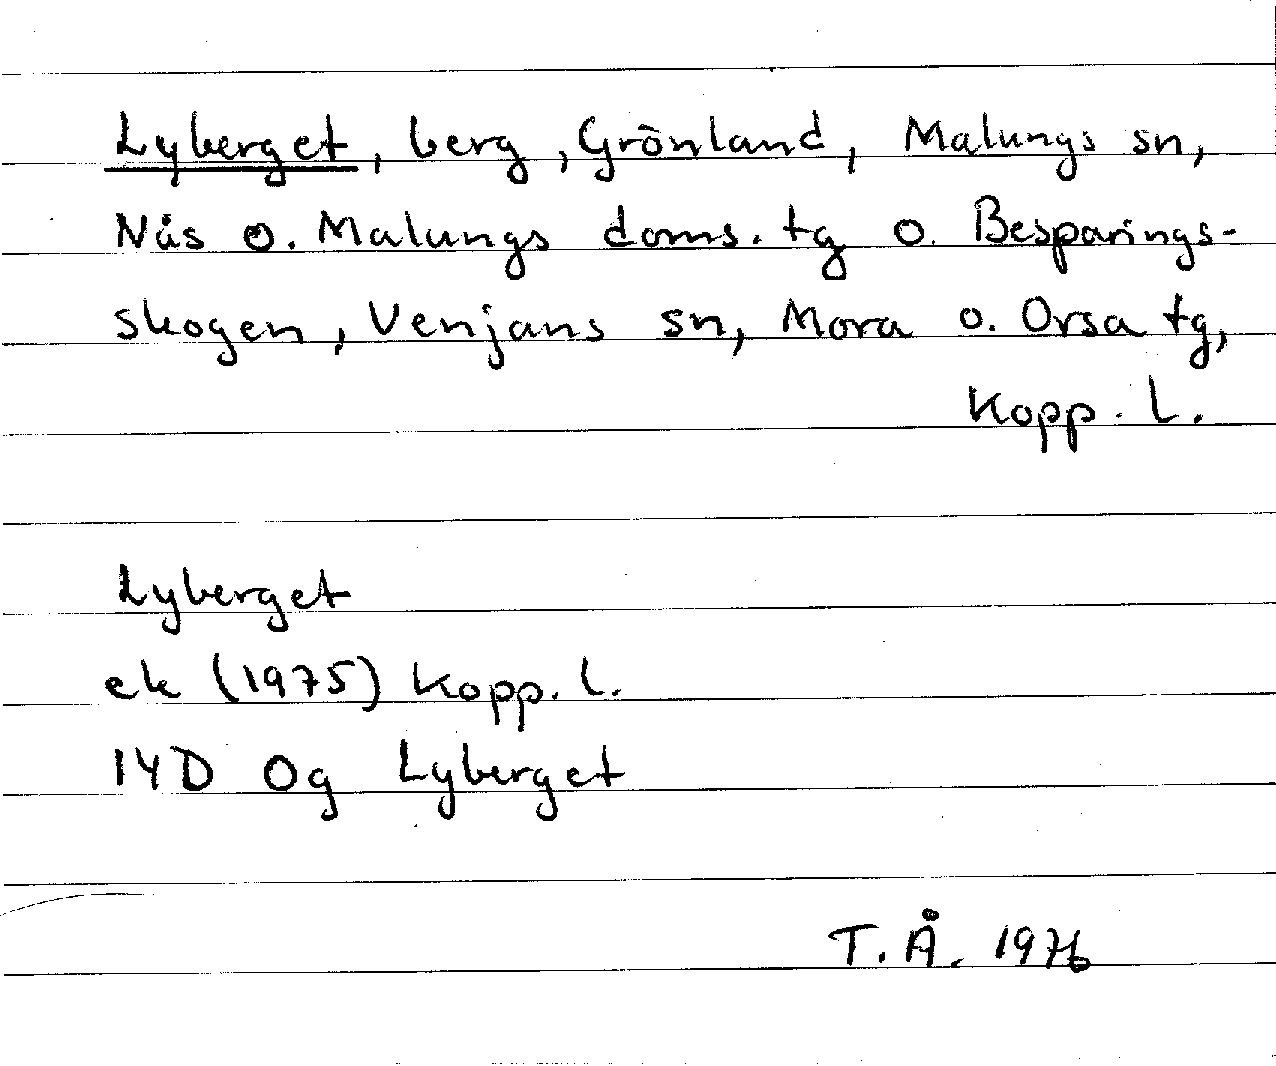 Lyberget, berg, Grönland, Malungs sn,
Nås o. Malungs doms. tg o. Besparings-
skogen, Venjans sn, Mora o. Orsa tg,
Kopp. l.
Lyberget
ek (1975) Kopp. l.
14D 0g Lyberget
T. Å. 1976